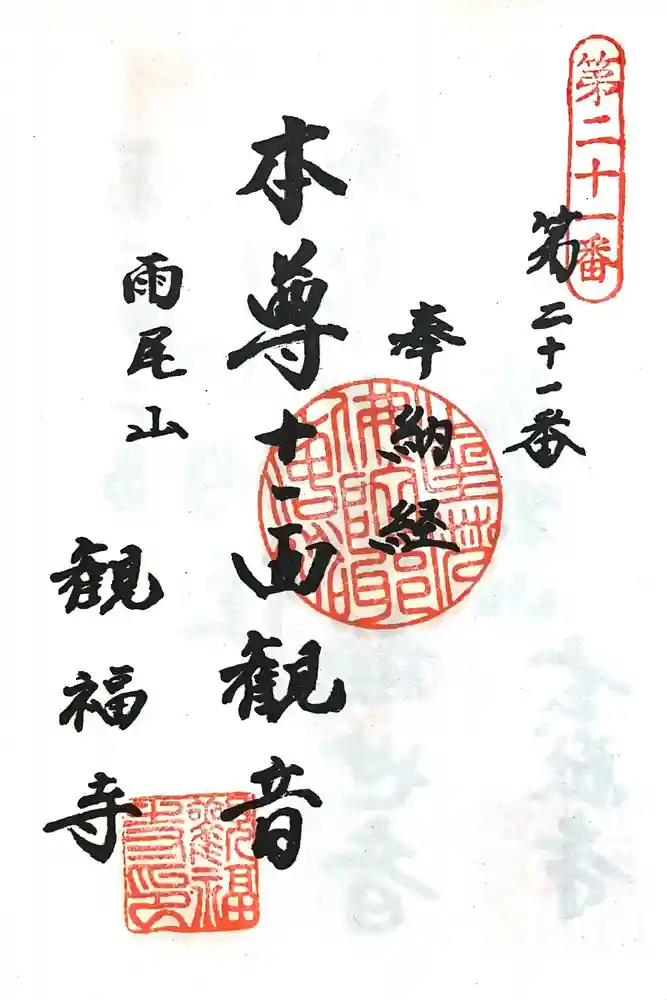 第二十一番
第二十一番
奉納経
本尊十一面観音
雨尾山
観福寺
観福寺印